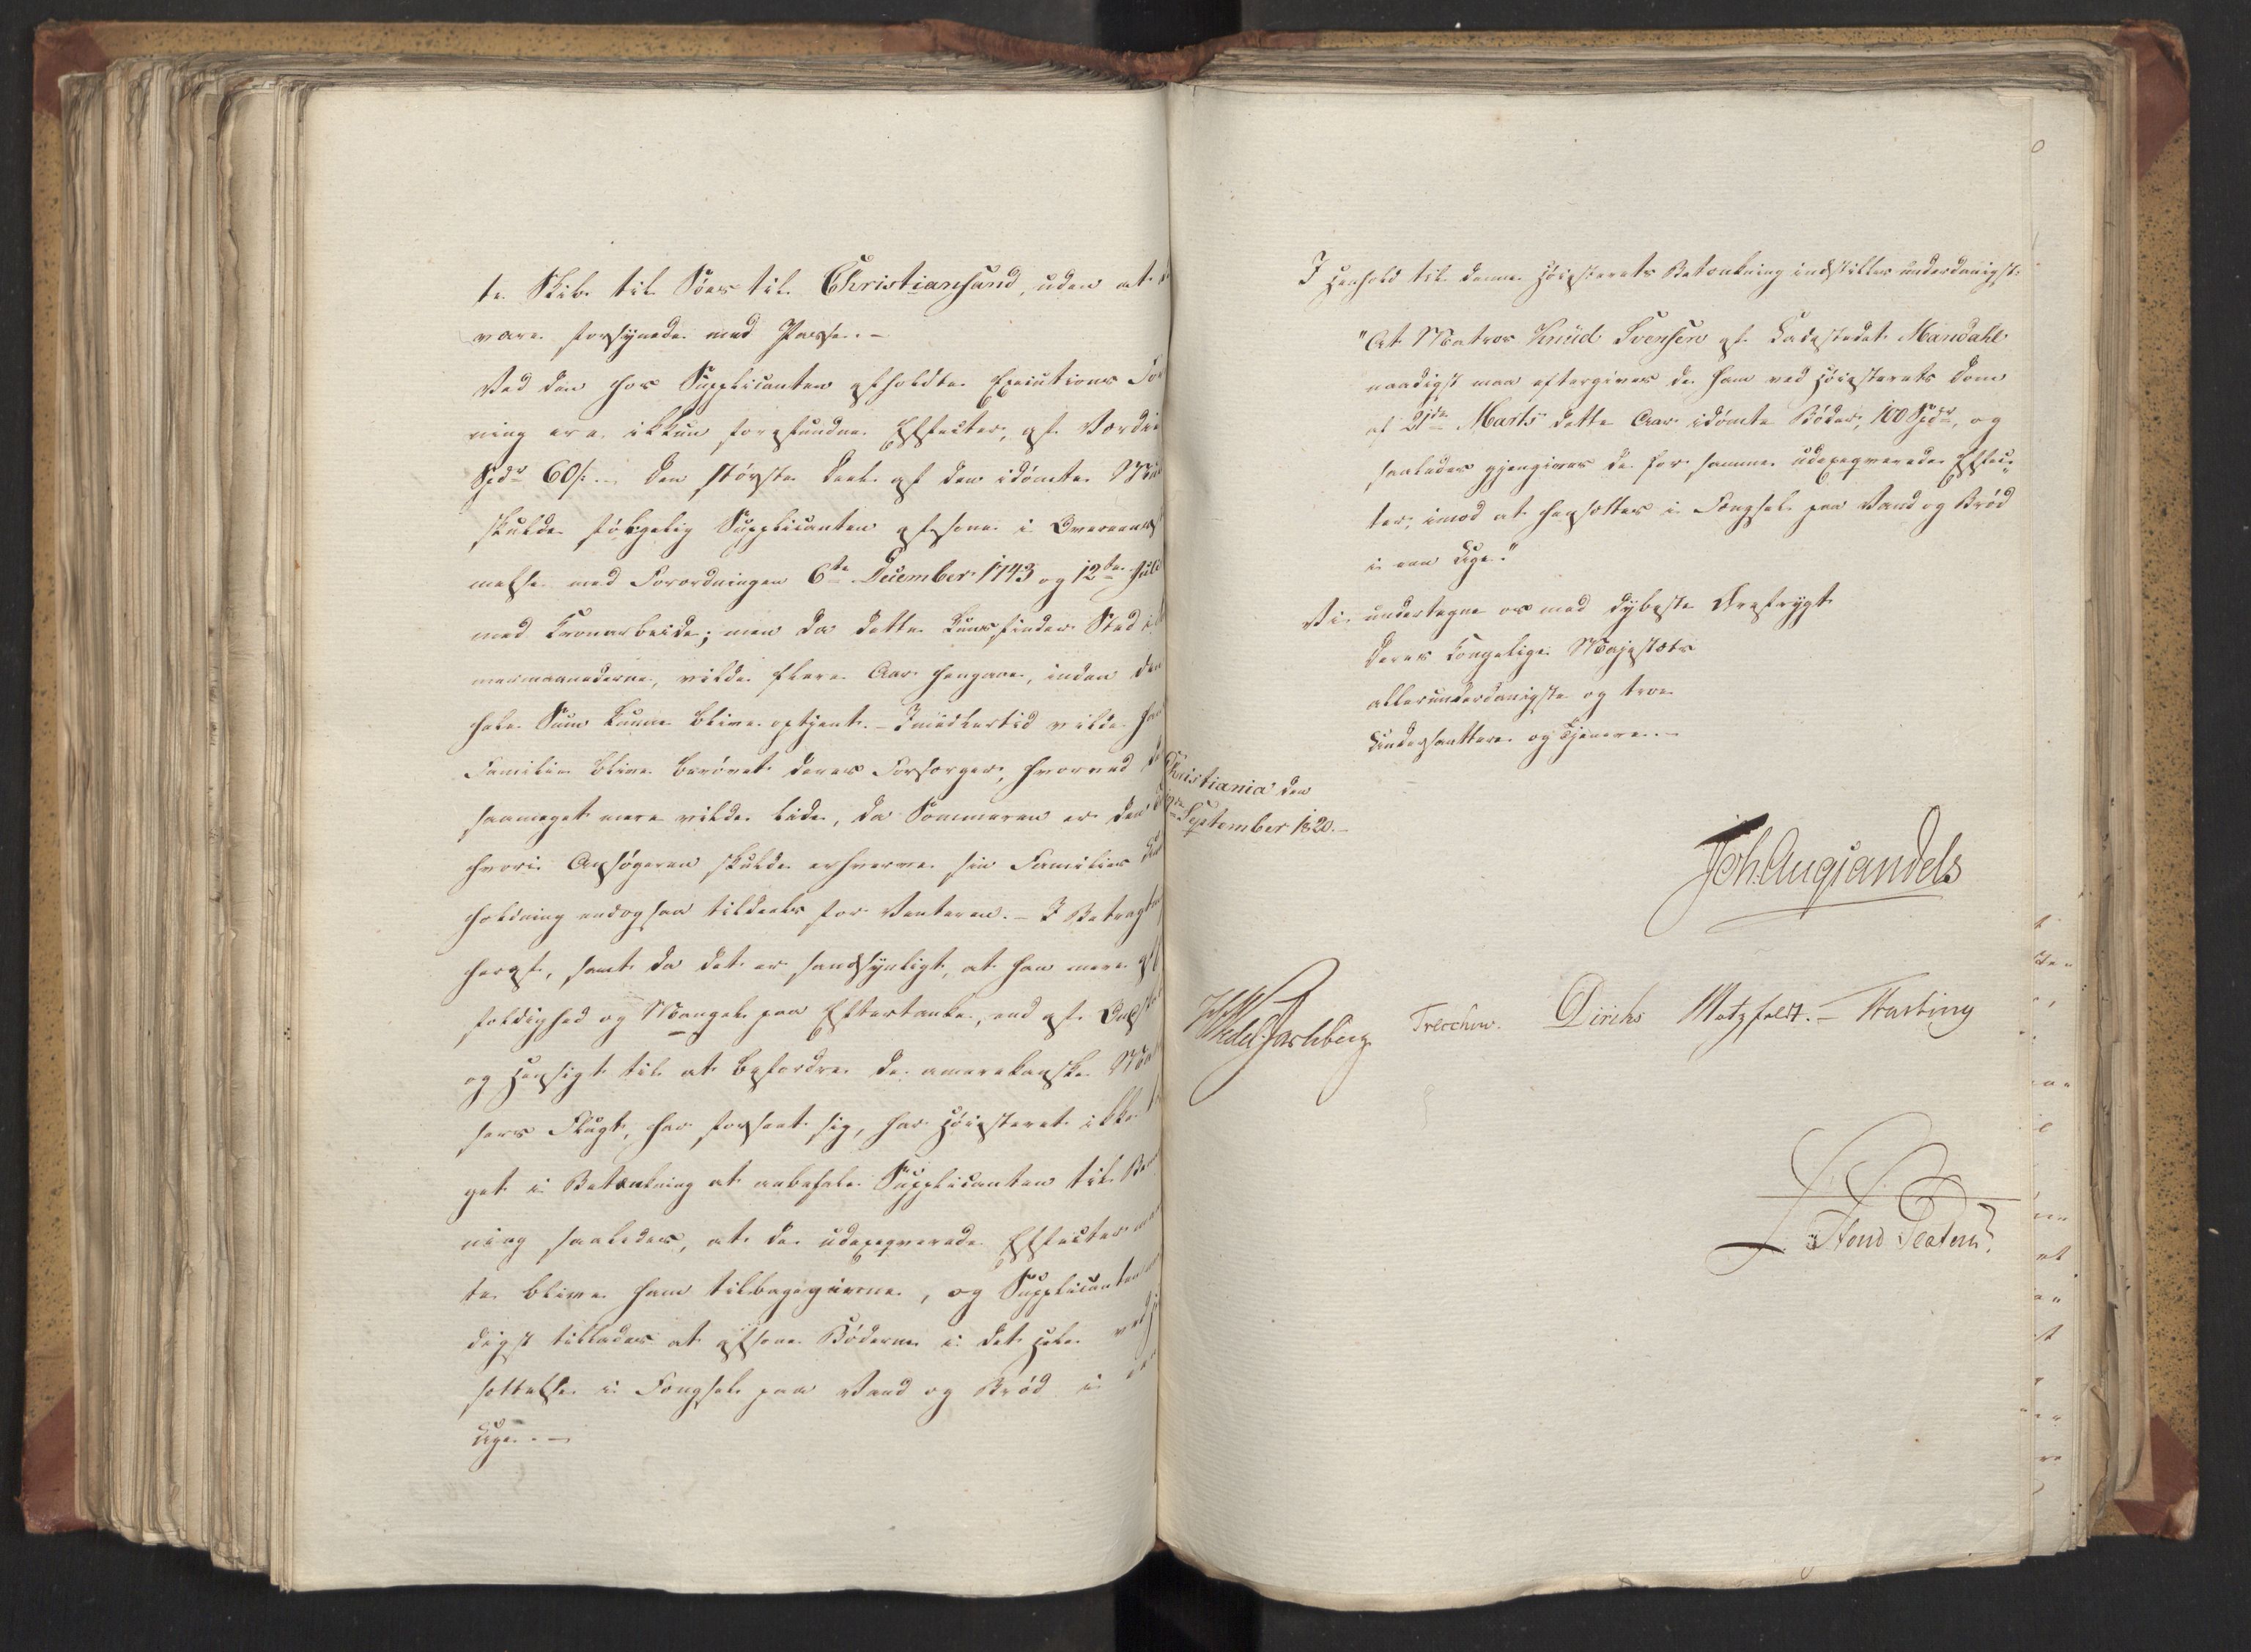 te Skib til Søes til Christiansand, uden at
vare forsynede med Passe. –
Ved den hos Supplicanten afholdte Executions For
ning ere ikkun forefundne Effecter, af Værdie
Spdr 60 s. Den største Deel af den idømte
skulde følgelig Supplicanten afsone i Overeenstem
melse med Forordningen 6te December 1743 og 12te Juli
med Tronarbeide; men da dette kuns finder Sted i
mermaanederne, vilde flere Aar hengaae, inden den
hele Sum kunne blive optjent. – Imidlertid vilde hans
Familie blive berøvet deres Forsørger, hvorved
saameget mere vilde lide, da Sommeren er den
hvori Ansøgeren skulde erhverve sin Families Under
holdning endogsaa tildeels for Venteren. – I Betragtning
heraf, samt da det er sandsynligt, at han mere af
foldighed og Mangel paa Eftertanke, end af
og Hensigt til at befordre de amerikanske Matro
sers Flugt, har forseet sig, har Høiesteret ikke ta
get i Betænkning at anbefale Supplicanten til Be
ning saaledes, at de udexeqverede Effecter maat
te blive ham tilbagegivne, og Supplicanten
digst tillades at afsone Bøderne i det Hele ved
sættelse i Fængsel paa Vand og Brød i
Uge. –
I Henhold til denne Høiesterets Betænkning indstilles underdanigst:
"At Matros Knud Svensen af Ladestedet Mandahl
naadigst maa eftergives de ham ved Høiesterets Dom
af 21de Marts dette Aar idømte Bøder, 100 Spdr, og
saaledes gjengives de for samme udexeqverede Effec-
ter, imod at hensættes i Fængsel paa Vand og Brød
i een Uge."
Vi undertegne os med dybeste Ærefrygt
Deres Kongelige Majestæts
allerunderdanigste og troe
Undersaattere og Tjenere. –
Christiania den
September 1820. –
Joh. Aug Sandels
HWedel Jarlsberg Treschow. Diriks Motzfeldt. – Fasting